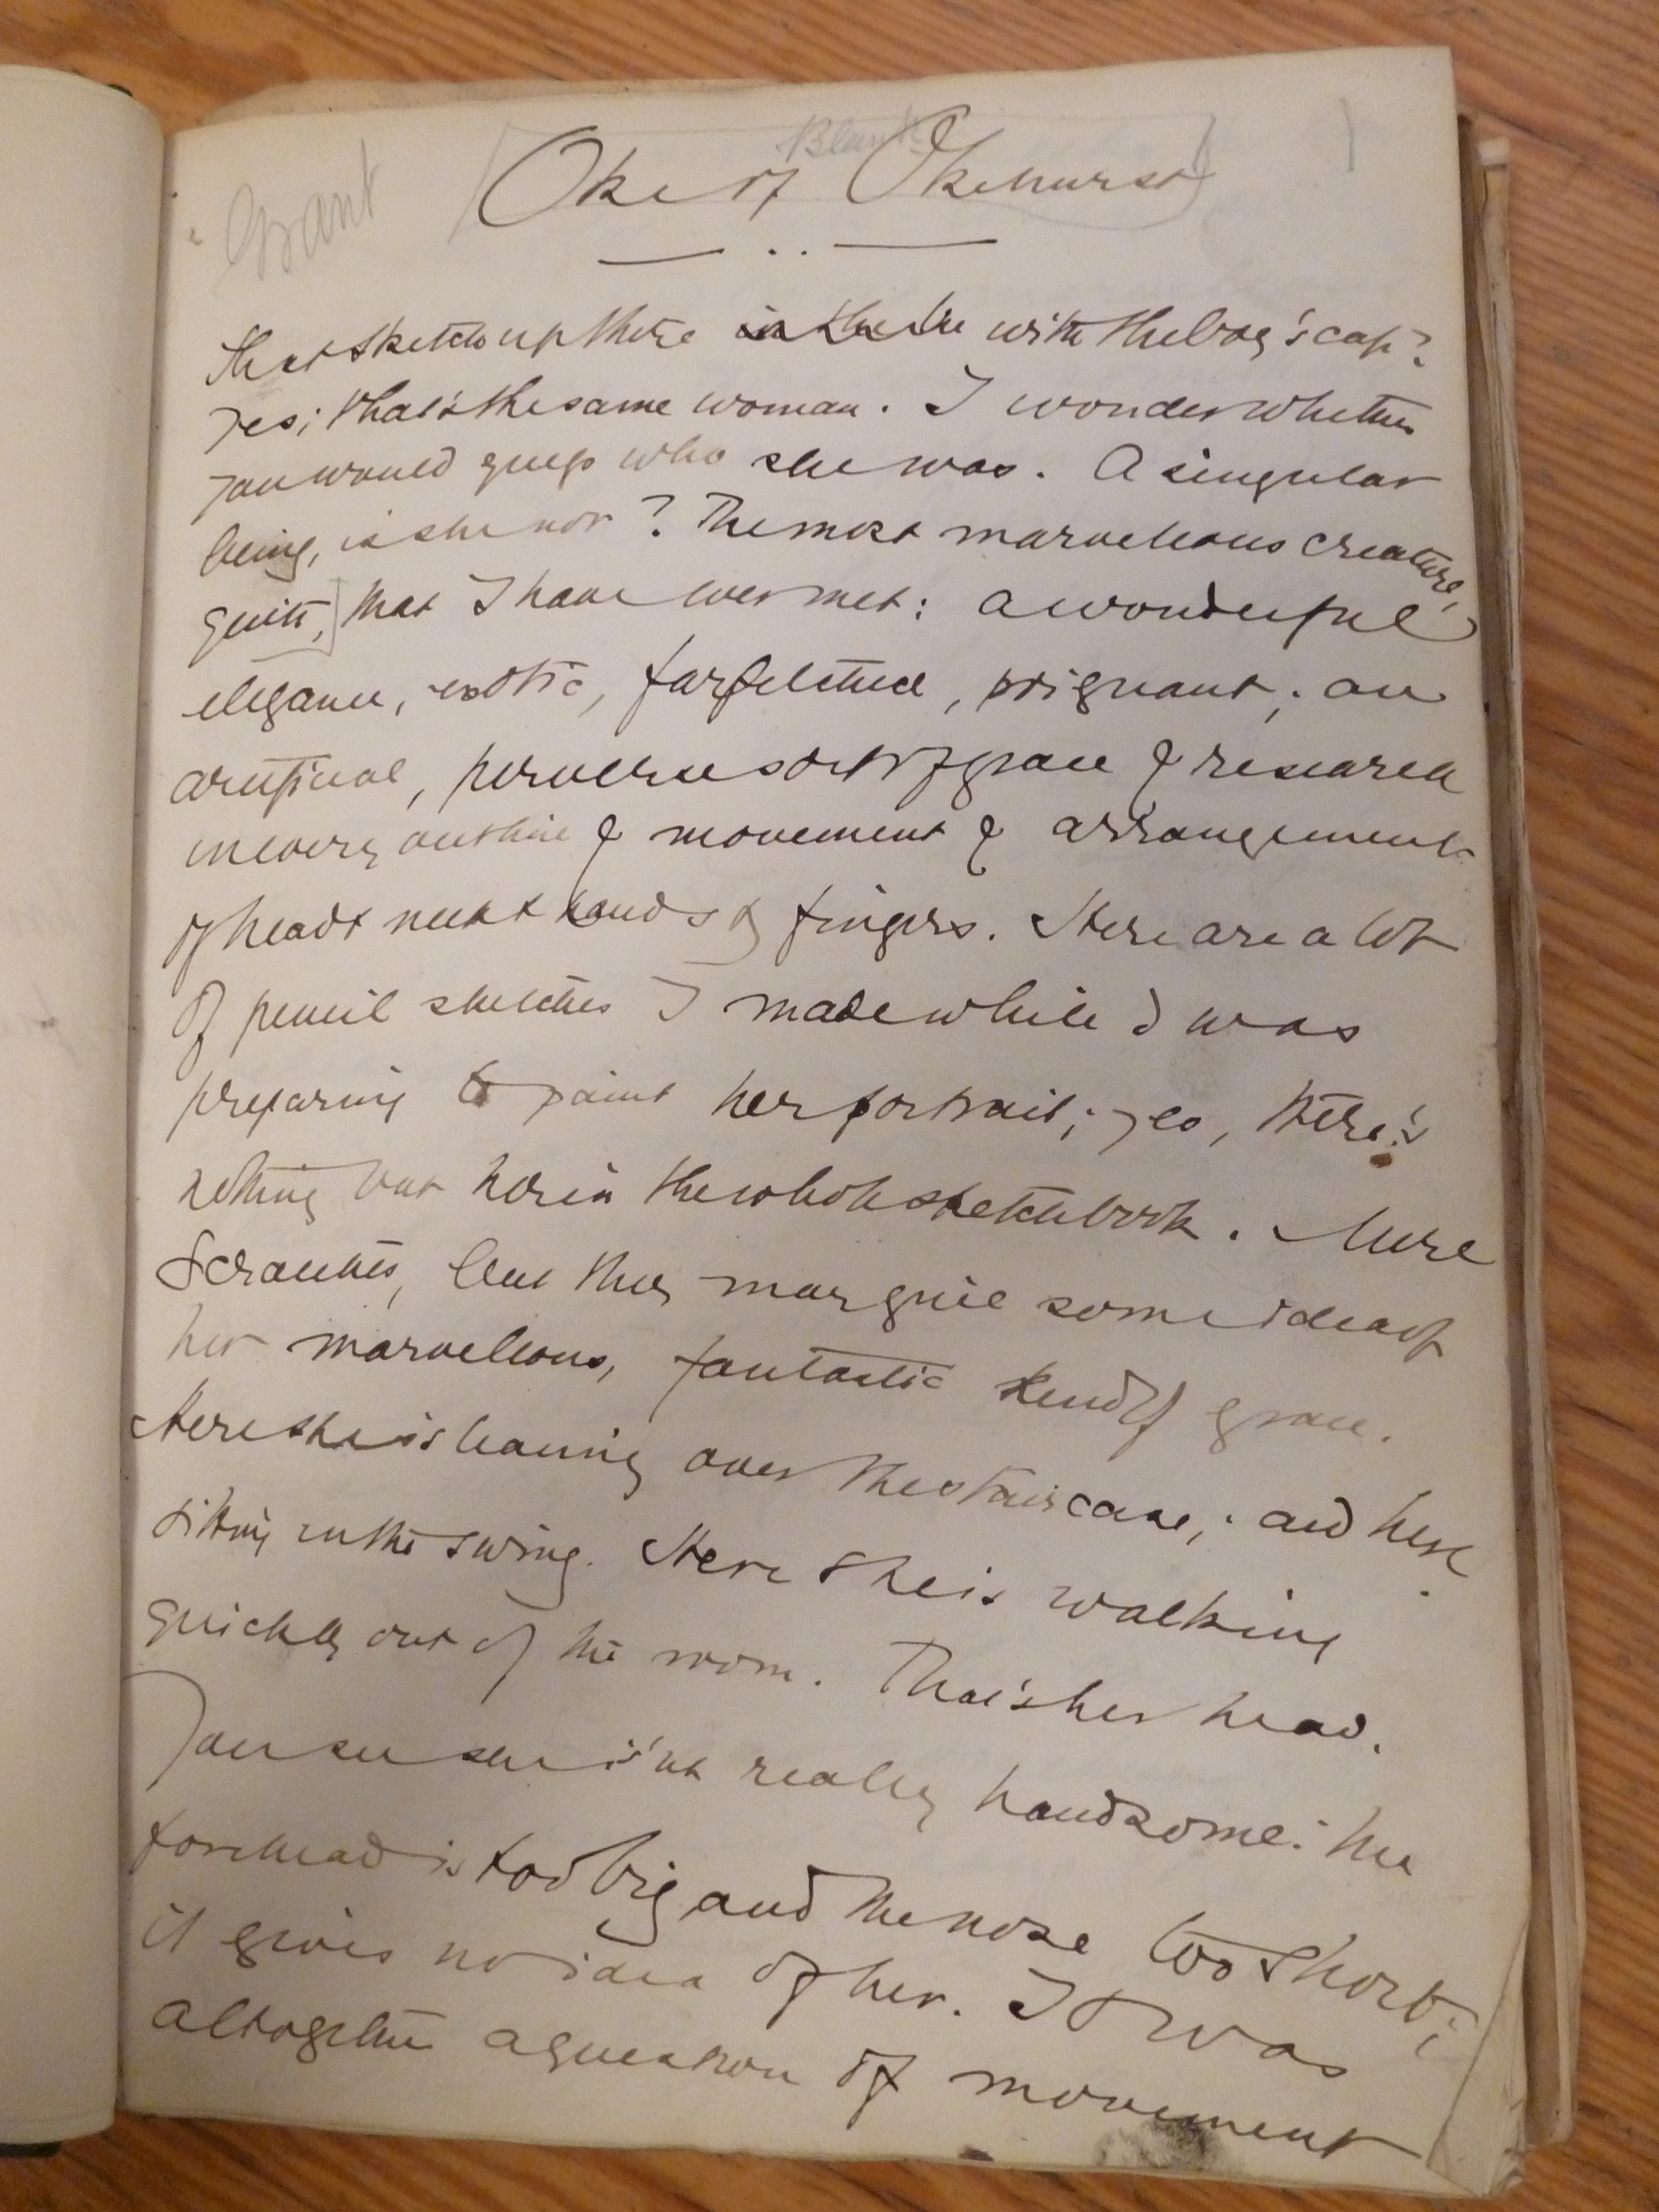 Blank
Oke of Okehurst
1
Grant
That sketch up there with the boy's cap?
Yes; that's the same woman. I wonder whether
you would guess who she was. A singular
being, is she not? The most marvellous creature,
quite, that I have ever met: a wonderful
elegance, exotic, farfetched, poignant; an
artificial, perverse sort of grace & research
in every outline & movement & arrangement
of head & neck & hands & fingers. Here are a lot
of pencil sketches I made while I was
preparing to paint her portrait; yes, there's
nothing but her in the whole sketchbook. Mere
scratches, but they may give some idea of
her marvellous, fantastic kind of grace.
Here she is leaning over the staircase; and here
sitting in the swing. Here she is walking
quickly out of the room. That's her head.
You see she is'nt really handsome: her
forehead is too big and the nose too short;
it gives no idea of her. It was
altogether a question of movement